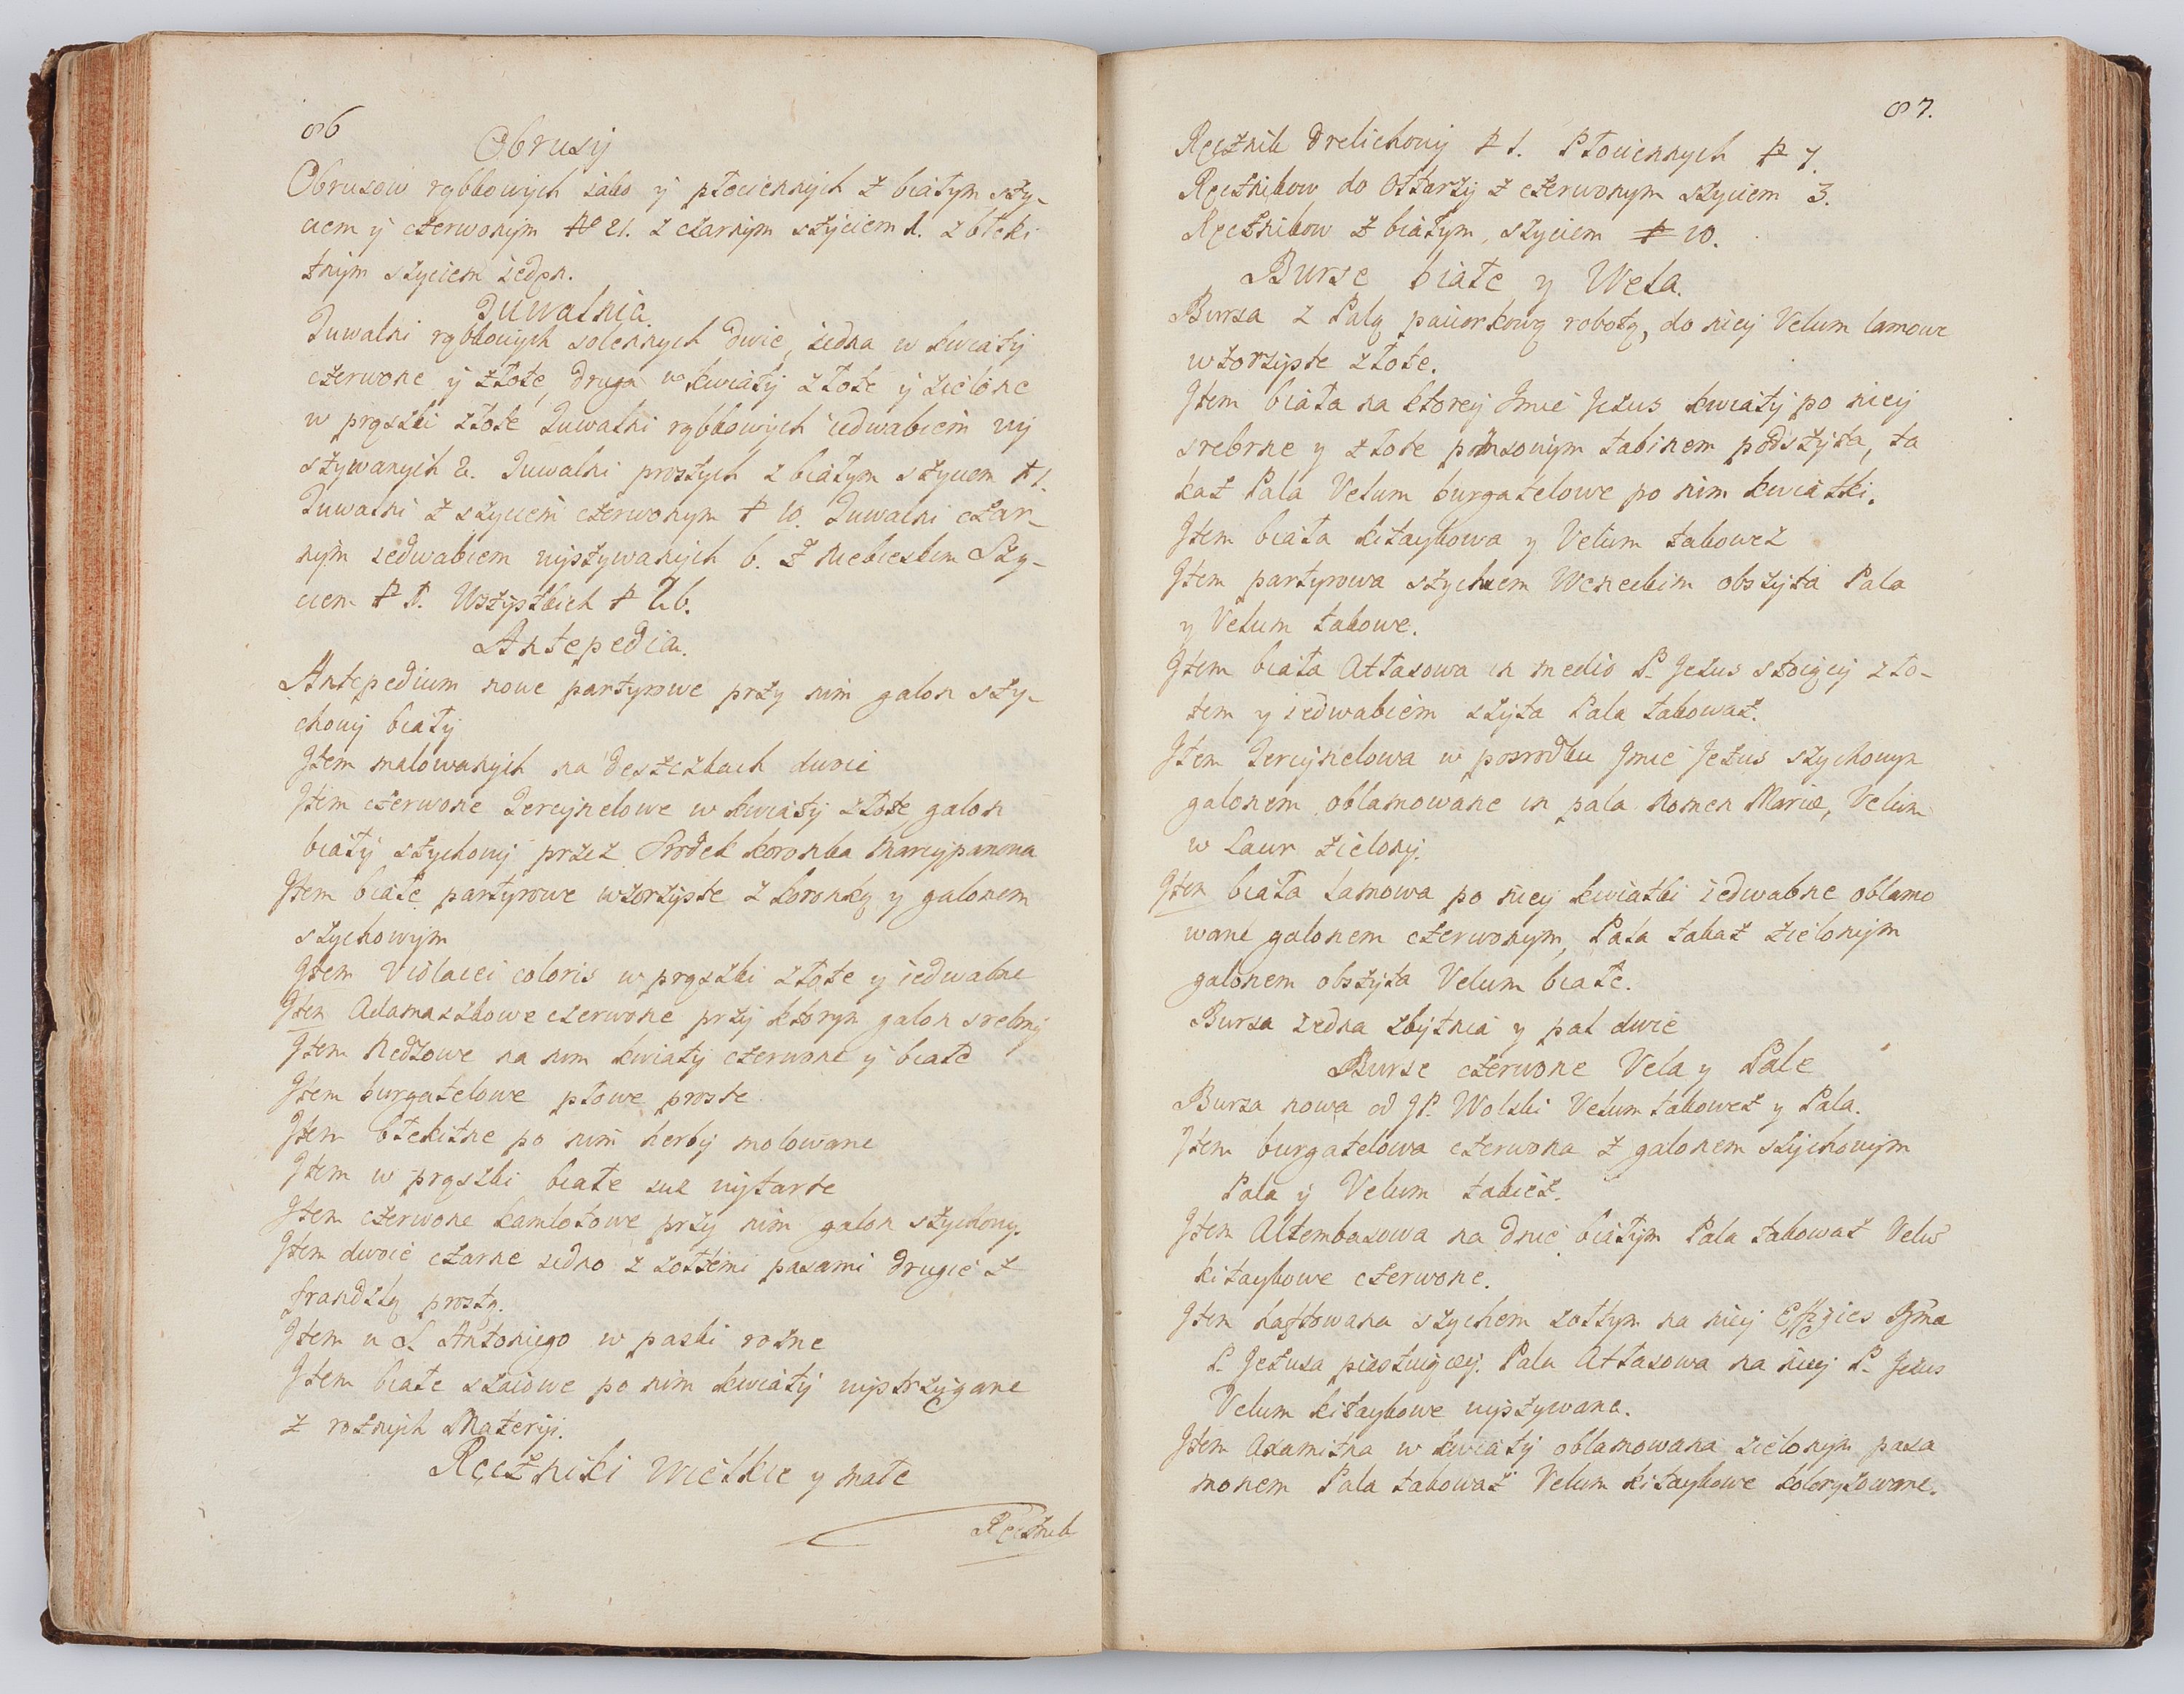 86
Obrusy
Obrusow rąbkowych iako y płociennych z białym szy-
ciem y czerwonym № 21. z czarnym szyciem 1. z błeki
tnym szyciem ieden.
Tuwalnia
Tuwalni rąbkowych solennych dwie, iedna w kwiaty
czerwone y złote, druga w kwiaty złote y zielone
w prąszki złote Tuwalni rąbkowych iedwabiem wy
szywanych 2. Tuwalni prostych z białym szyciem № 1.
Tuwalni z szyciem czerwonym № 10. Tuwalni czar-
nym iedwabiem wyszywanych 6. z niebieskim Szy-
ciem № 1. Wszystkich № 26.
Antepedia.
Antepedium nowe partyrowe przy nim galon szy-
chowy biały
Item malowanych na deszczkach dwie
Item czerwone Tercynelowe w kwiaty złote, galon
biały szychowy przez Srodek koronka Marcypanowa
Item białe partyrowe wzorzyste z koronką y galonem
szychowym
Item Violacei coloris w prąszki złote y iedwabne
Item Adamaszkowe czerwone przy ktorym galon srebrny
Item Nedzowe na nim kwiaty czerwone y białe
Item burgatelowe płowe proste
Item błekitne po nim herby molowane
Item w prąszki białe iuz wytarte
Item czerwone kamlotowe przy nim galon szychowy.
Item dwoie czarne iedno z zołtemi pasami drugie z
frandzlą prostą.
Item u S. Antoniego w paski rozne
Item białe szaiowe po nim kwiaty wystrzygane
z roznych Materyi.
Ręczniki wielkie y małe
Ręcznik
87.
Ręcznik drelichowy № 1. Płociennych № 7.
Ręcznikow do Ołtarzy z czerwonym szyciem 3.
Ręcznikow z białym, szyciem № 10.
Burse białe y Wela.
Bursa z Palą paciorkową robotą, do niey Velum lamowe
wzorzyste złote.
Item biała na ktorey Imie Jezus kwiaty po niey
srebrne y złote ponsowym tabinem podszyta, ta
kaz Pala Velum burgatelowe po nim kwiatki.
Item biała kitaykowa y Velum takowez
Item partyrowa szychem Weneckim obszyta Pala
y Velum takowe.
Item biała Atłasowa in medio P. Jezus stoiący zło-
tem y iedwabiem szyta Pala takowaz.
Item Tercynelowa w posrodku Imie Jezus szychowym
galonem oblamowane in pala Nomen Mariæ, Velum
w Laur zielony.
Item biała Lamowa po niey kwiatki iedwabne oblamo
wane galonem czerwonym, Pala takaz zielonym
galonem obszyta Velum białe.
Bursa iedna zbytnia y pal dwie
Burse czerwone Vela y Pale
Bursa nowa od JP. Wolski Velum takowez y Pala.
Item burgatelowa czerwona z galonem szychowym
Pala y Velum takiez.
Item Altembasowa na dnie białym Pala takowaz Velũ
kitaykowe czerwone.
Item haftowana szychem zołtym na niey Effigies
P. Jezusa piastuiącey. Pala Atłasowa na niey P. Jezus
Velum kitaykowe wyszywane.
Item axamitna w kwiaty oblamowana zielonym pasa
monem Pala takowaz Velum kitaykowe koloryzowane.